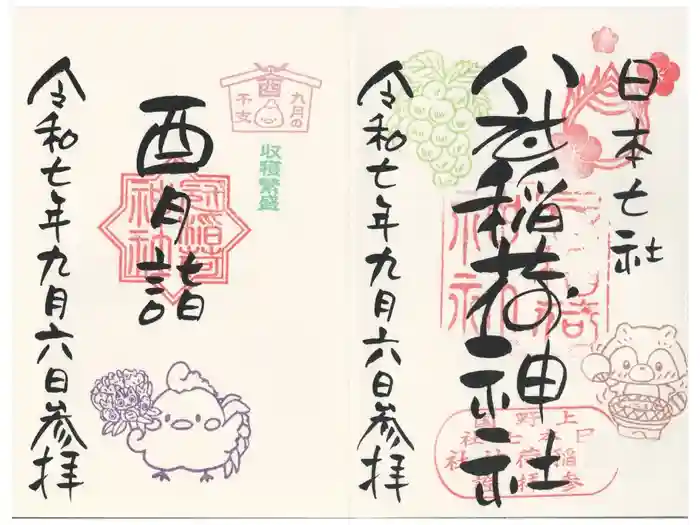 日本七社
冠稲荷神社
令和七年九月六日参拝
九月の
酉
干支
収穫繁盛
酉月詣
冠稲荷
神社
令和七年九月六日参拝